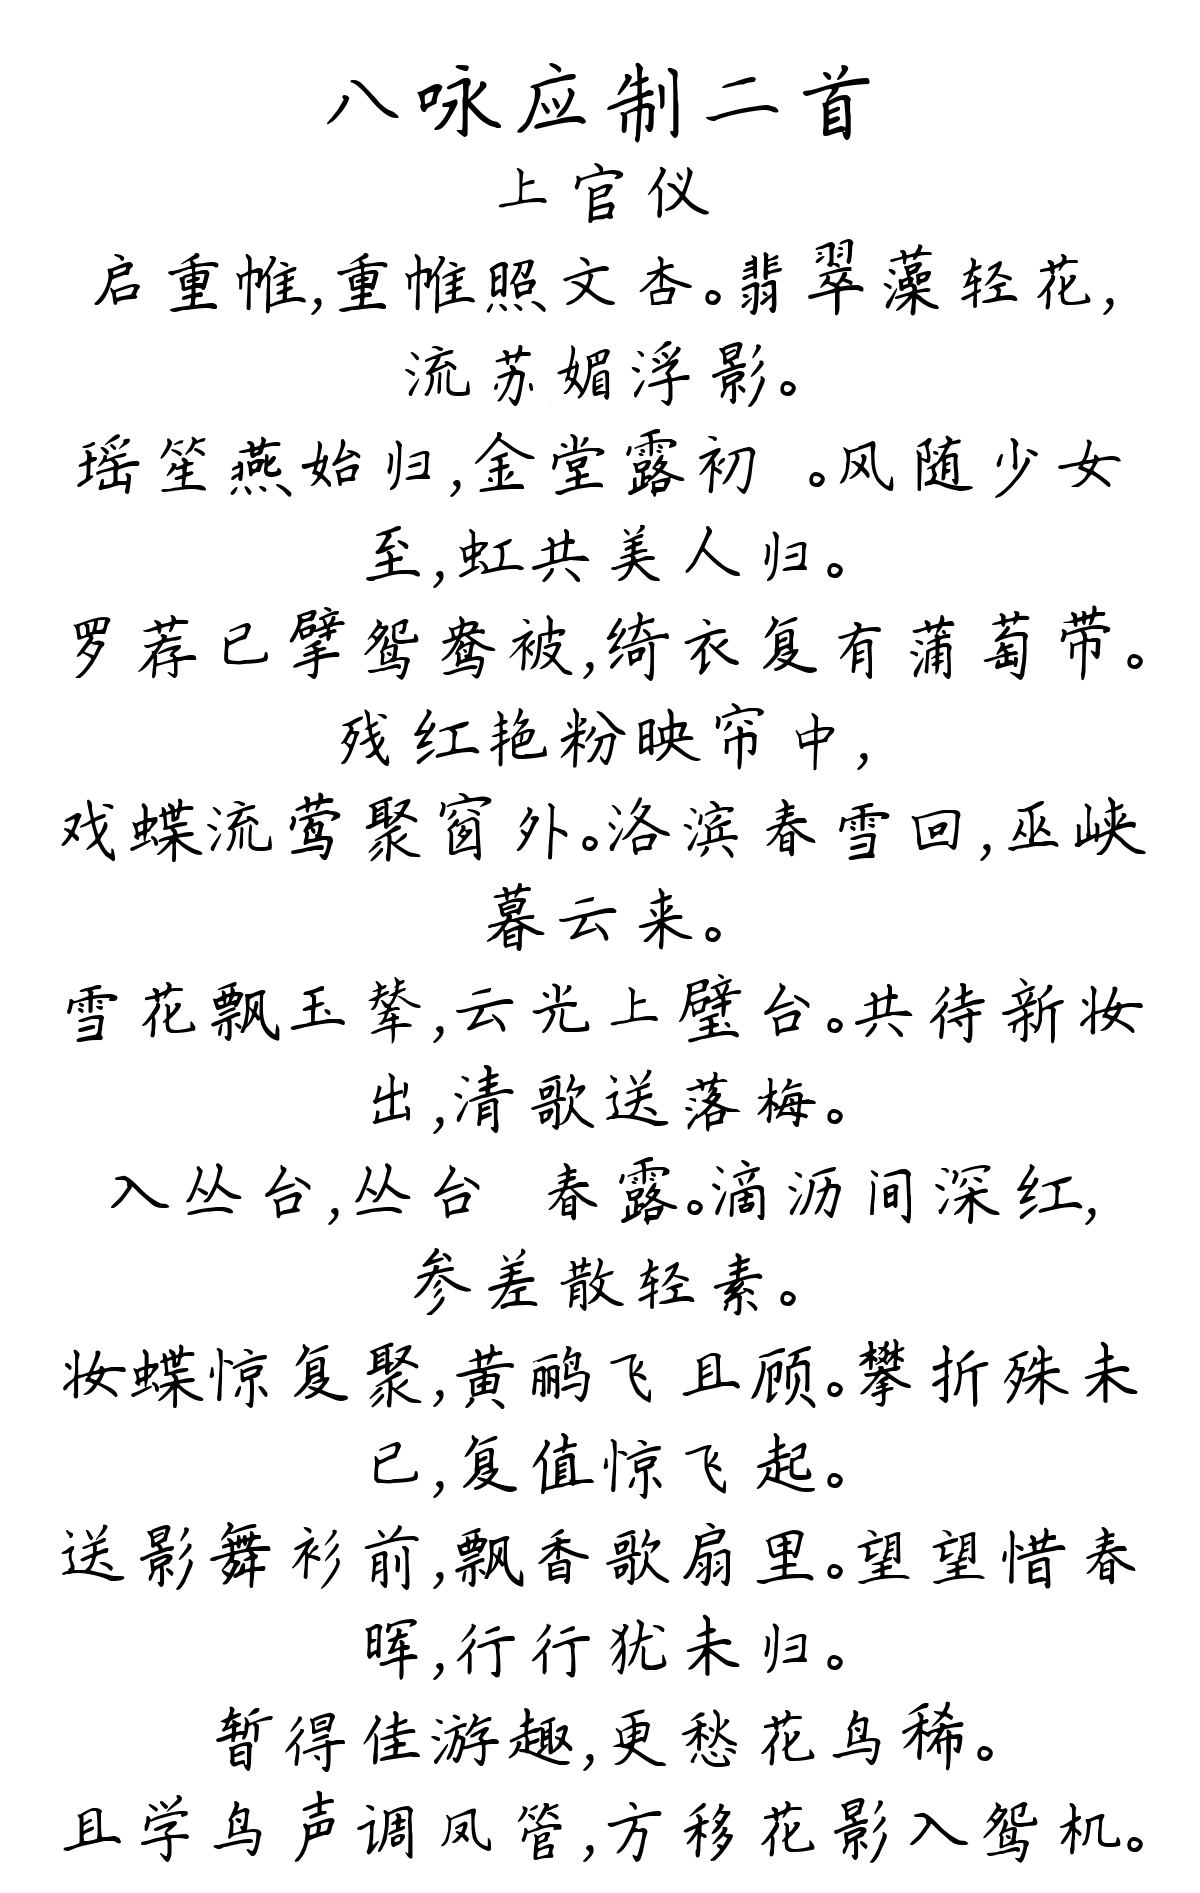 八咏应制二首
上官仪
启重帷,重帷照文杏。翡翠藻轻花,
流苏媚浮影。
瑶笙燕始归,金堂露初 。风随少女
至,虹共美人归。
罗荐已擘鸳鸯被,绮衣复有蒲萄带。
残红艳粉映帘中,
戏蝶流莺聚窗外。洛滨春雪回,巫峡
暮云来。
雪花飘玉辇,云光上璧台。共待新妆
出,清歌送落梅。
入丛台,丛台 春露。滴沥间深红,
参差散轻素。
妆蝶惊复聚,黄鹂飞且顾。攀折殊未
已,复值惊飞起。
送影舞衫前,飘香歌扇里。望望惜春
晖,行行犹未归。
暂得佳游趣,更愁花鸟稀。
且学鸟声调凤管,方移花影入鸳机。